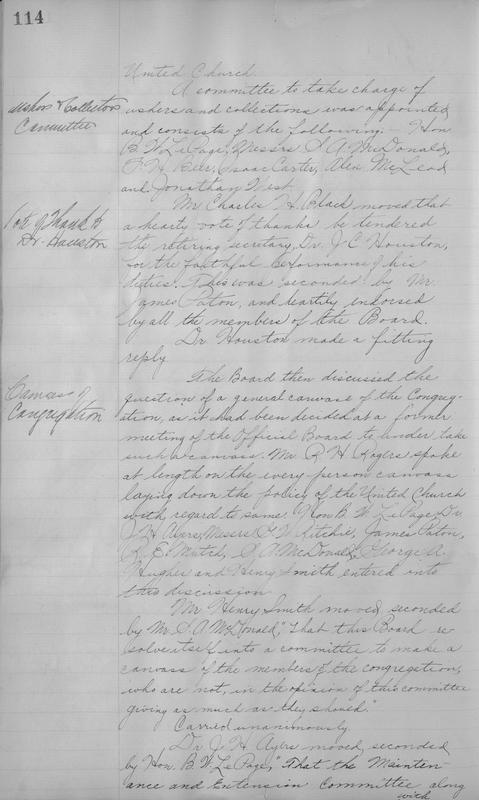 114
United Church.
A committee to take charge of
Ushers & Collectors
ushers and collections was appointed
Committee
and consists of the following: - Hon
B. W. LePage, Messrs D. A. McDonald,
F. H. Beer, Isaac Carter, Alex McLeod
and Jonathan West.
Mr Charles H. Black moved that
Vote of Thanks to
a hearty vote of thanks be tendered
Dr. Houston
the retiring secretary, Dr. J C. Houston,
for the faithful performance of his
duties. This was seconded by Mr.
James Paton, and heartily endorsed
by all the members of the Board.
Dr. Houston made a fitting
reply
The Board then discussed the
Canvass of
question of a general canvass of the Congreg-
Congregation
ation, as it had been decided at a former
meeting of the Official Board to under take
such a canvass. Mr. R H Rogers spoke
at length on the every-person canvass
laying down the policy of the United Church
with regard to same. Hon B. W. LePage, Dr.
J H Ayre, Messrs F. W. Ritchie, James Paton,
R. E. Mutch, D. A McDonald, George A.
Hughes and Henry Smith entered into
this discussion
Mr Henry Smith moved, seconded
by Mr. D A McDonald, "That this Board re
solve itself into a committee to make a
canvass of the members of the congregation,
who are not, in the opinion of this committee
giving as much as they should."
Carried unanimously.
Dr. J. H Ayers moved, seconded
by Hon. B. W. LePage, "That the Mainten-
ance and Extension Committee along
with